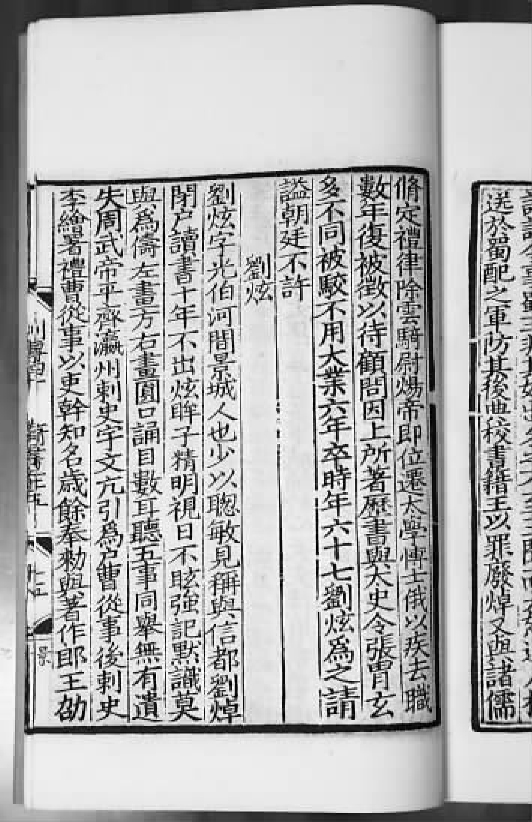 送於蜀配之軍防其後典校書籍王以罪廢焯又與諸儒
脩定禮律除雲騎尉煬帝即位遷太學愽士俄以疾去職
數年復被徵以待顧問因上所著曆書與太史令張胄玄
多不同被駮不用大業六年卒時年六十七劉炫爲之請
謚朝廷不許
劉炫
劉炫字光伯河間景城人也少以聦敏見稱與信都劉焯
閉戶讀書十年不出炫眸子精明視日不眩強記默識莫
與爲儔左畫方右畫圓口誦目數耳聽五事同舉無有遺
失周武帝平齊瀛州刺史宇文亢引爲户曹從事後刺史
李繪署禮曹從事以吏幹知名歳餘奉勑與著作郎王劭